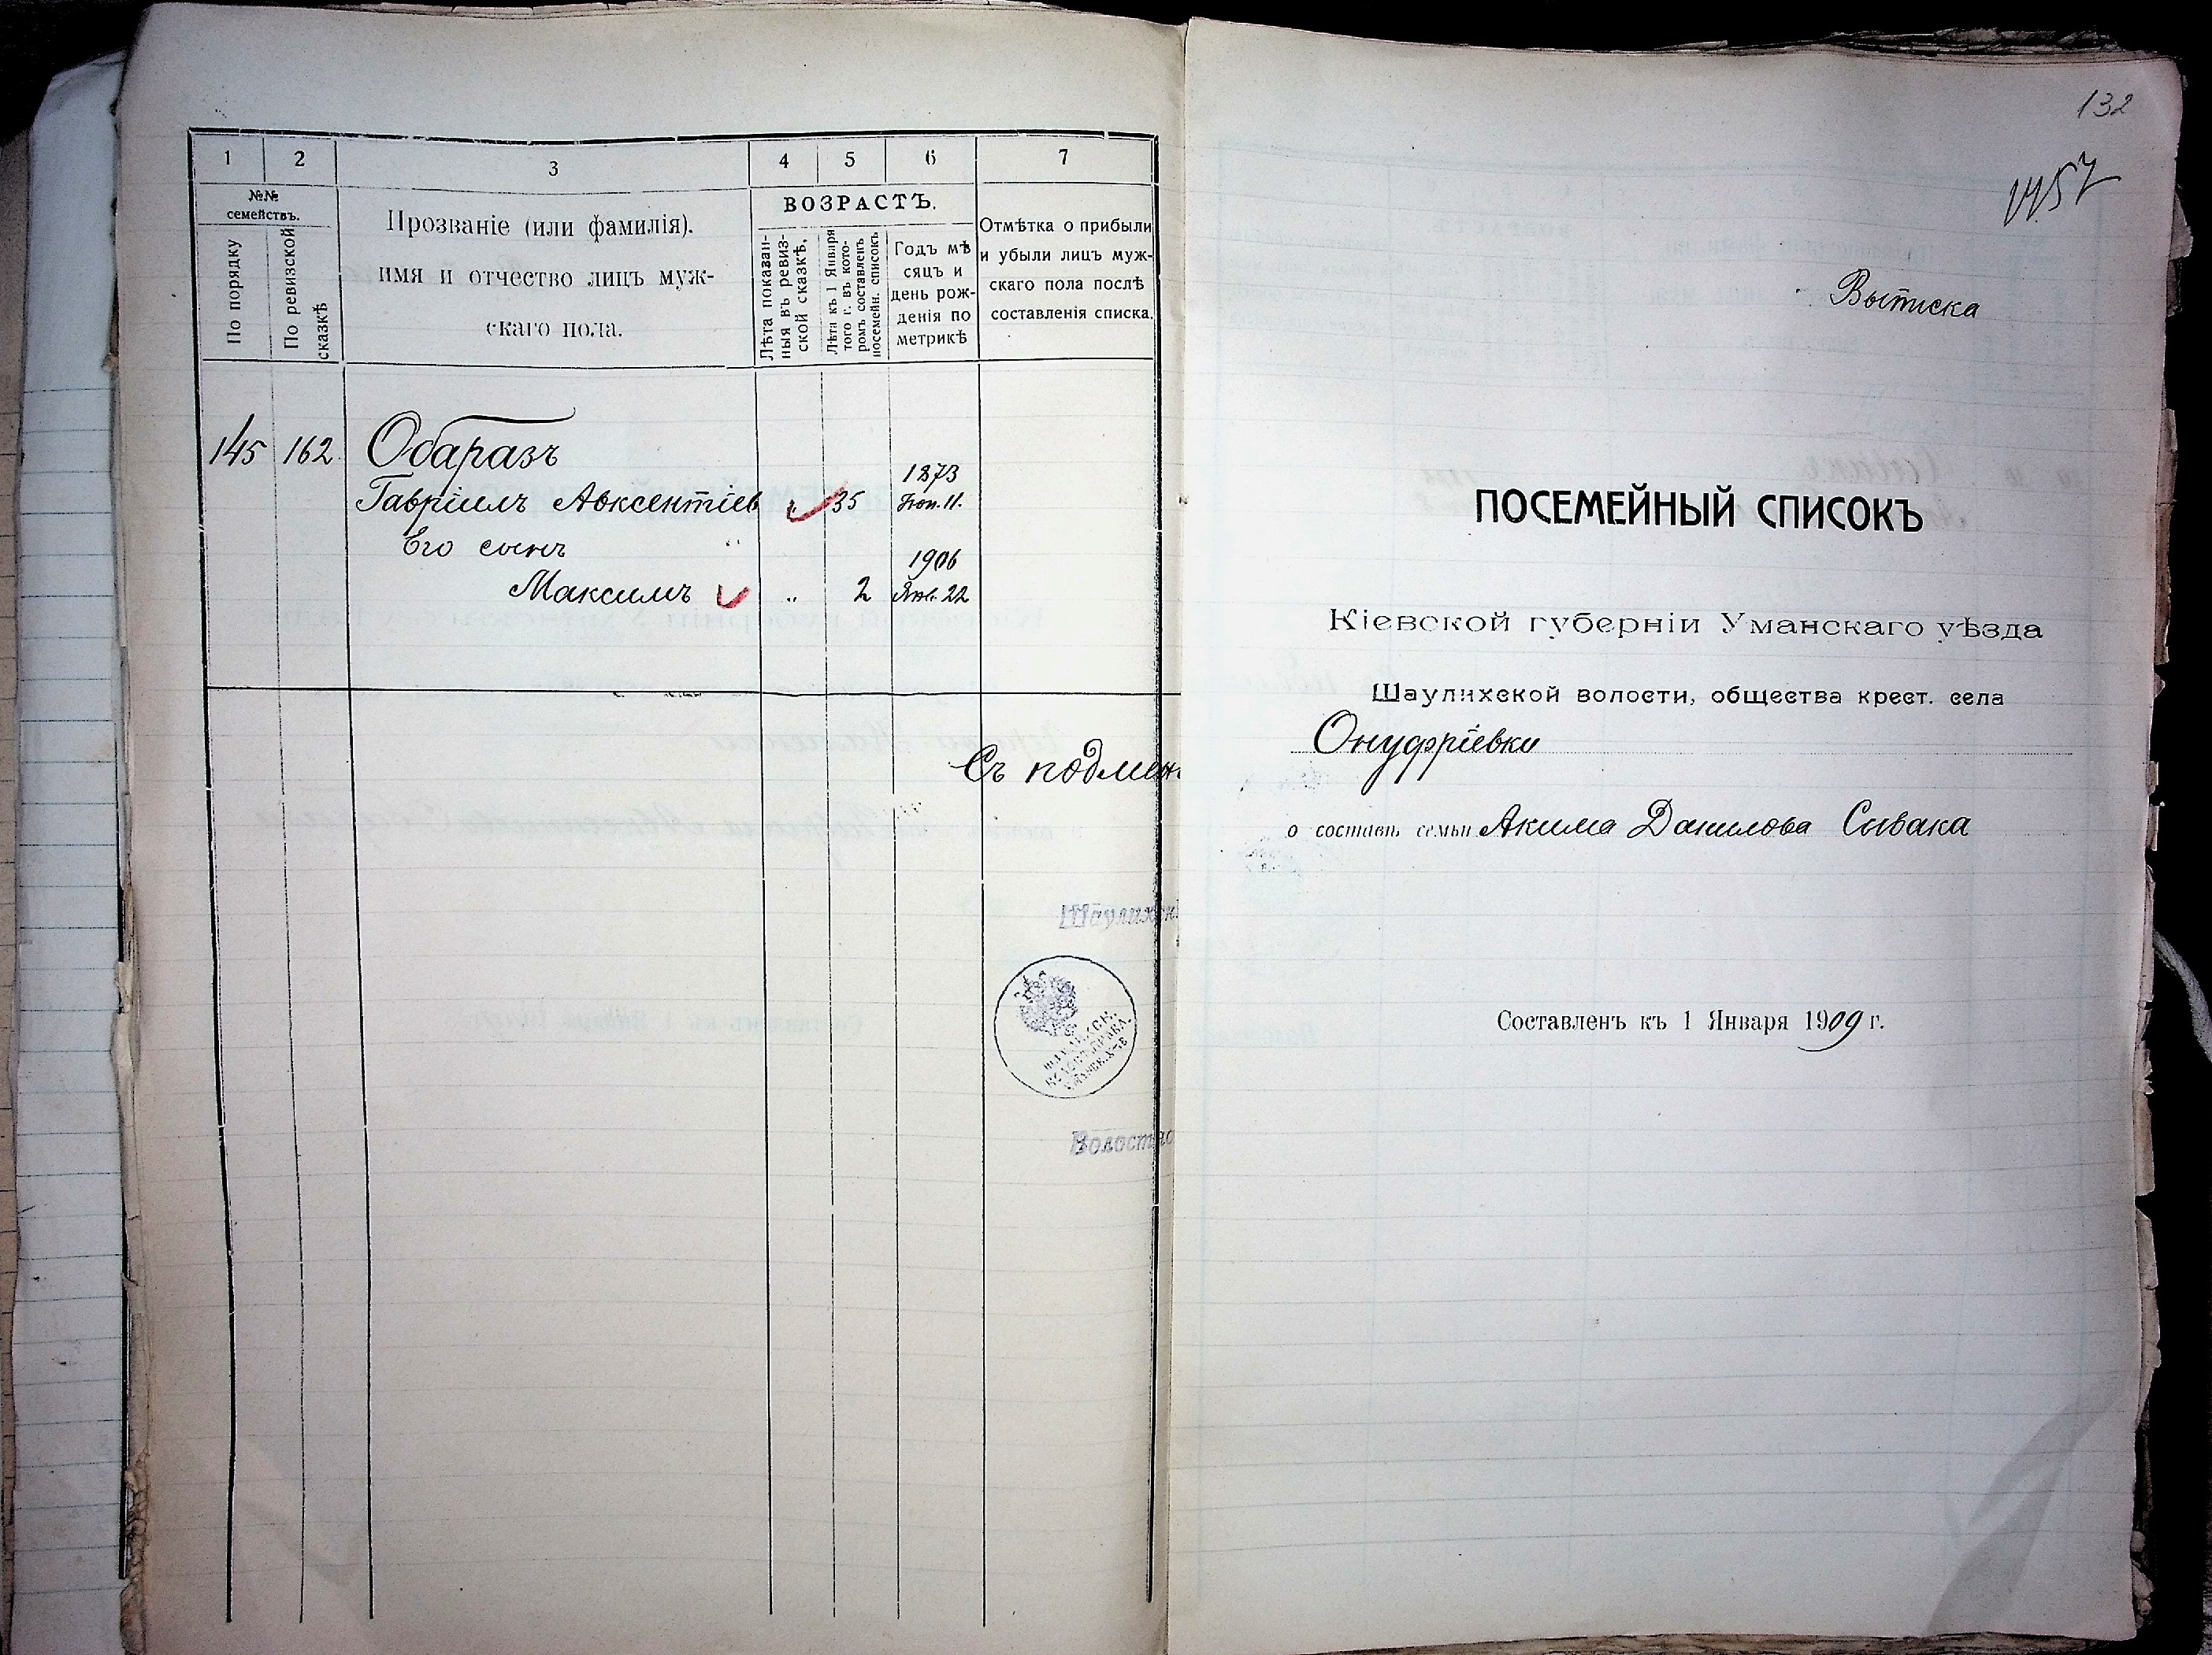 1 2 3 4 5 6 7
№№ семействъ.
По порядку
По ревизской сказкѣ
Прозваніе (или фамилія).
имя и отчество лицъ муж-
скаго пола.
ВОЗРАСТЪ.
Лѣта показан-
ныя въ ревиз-
ской сказкѣ,
Лѣта къ 1 Января
того г. въ кото-
ромъ составленъ
посемейн. списокъ
Годъ мѣ
сяцъ и
день рож-
денія по
метрикѣ
Отмѣтка о прибыли
и убыли лицъ муж-
скаго пола послѣ
составленія списка.
145 162 Обаразъ
1873
Гавріилъ Авксентіев „ 35 11.
Его сынъ „
1906
Максимъ „ 2 Янв. 22
Съ подлин
Шаулихск
Волостно
132
Выписка
ПОСЕМЕЙНЫЙ СПИСОКЪ
Кіевской губерніи Уманскаго уѣзда
Шаулихской волости, общества крест. села
Онуфріевки
о составѣ семьи Акима Данилова Сивака
Составленъ къ 1 Января 1909 г.